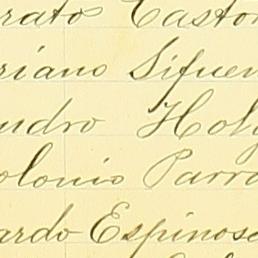 rato Caston
riano Sifuen
udro Holg
olonio Parra
ardo Espinosa